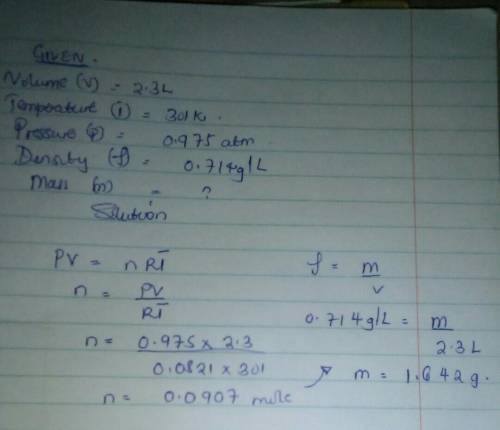 GIVEN.
Volume (v) = 2.3L
Temperature (T) = 301K.
Pressure (P) = 0.975 atm
Density (ρ) = 0.714g/L
Mass (m) = ?
Solution
PV = nRT
n = PV
RT
n = 0.975 x 2.3
0.0821 x 301
n = 0.0907 mole
ρ = m
v
0.714g/L = m
2.3L
m = 1.642g.